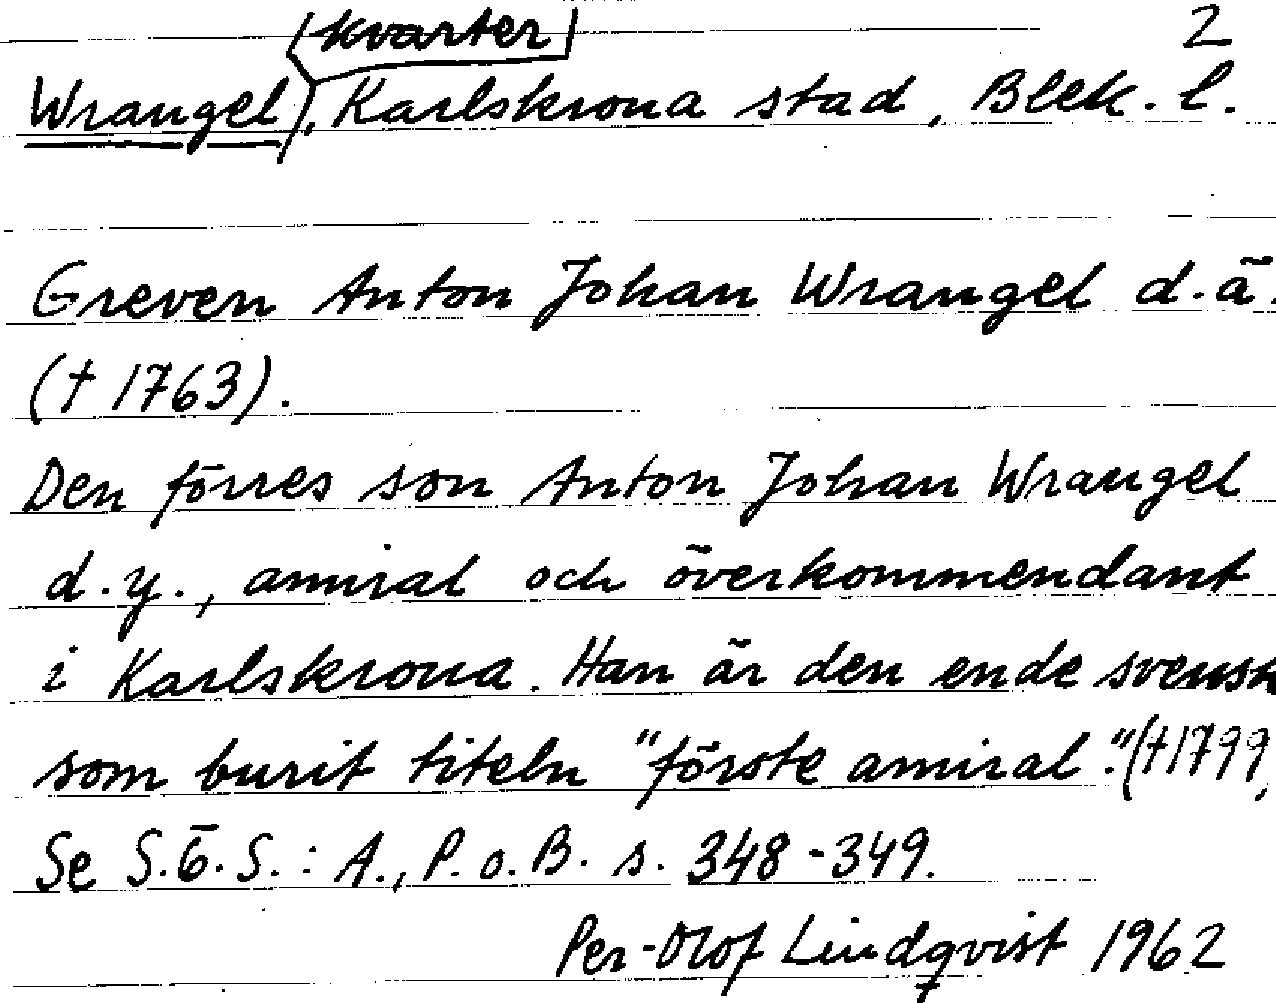 kvarter 2
Wrangel, Karlskrona stad, Blek. l.
Greven Anton Johan Wrangel d.ä.
(† 1763).
Den förres son Anton Johan Wrangel
d.y., amiral och överkommendant
i Karlskrona. Han är den ende svensk
som burit titeln "förste amiral". († 1799,
Se S.Ö.S.: A., P. o. B. s. 348-349.
Per-Olof Lindqvist 1962